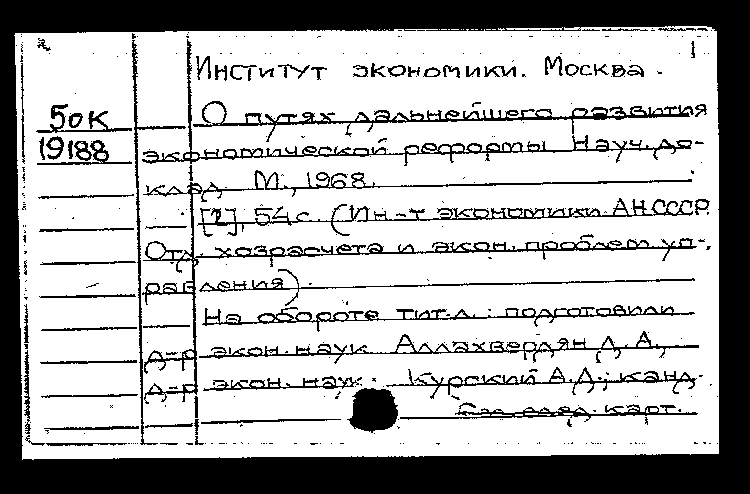 1
Институт экономики. Москва.
50К
О путях дальнейшего развития
19188
экономической реформы. Науч. до-
клад М., 1968.
[2], 54 с. (Ин-т экономики АН СССР.
Отд. хозрасчета и экон. проблем уп-
равления).
На обороте тит. л.: подготовили
д-р экон. наук Аллахвердян Д. А.,
д-р экон. наук. Курский А. Д.; канд.
См. след. карт.